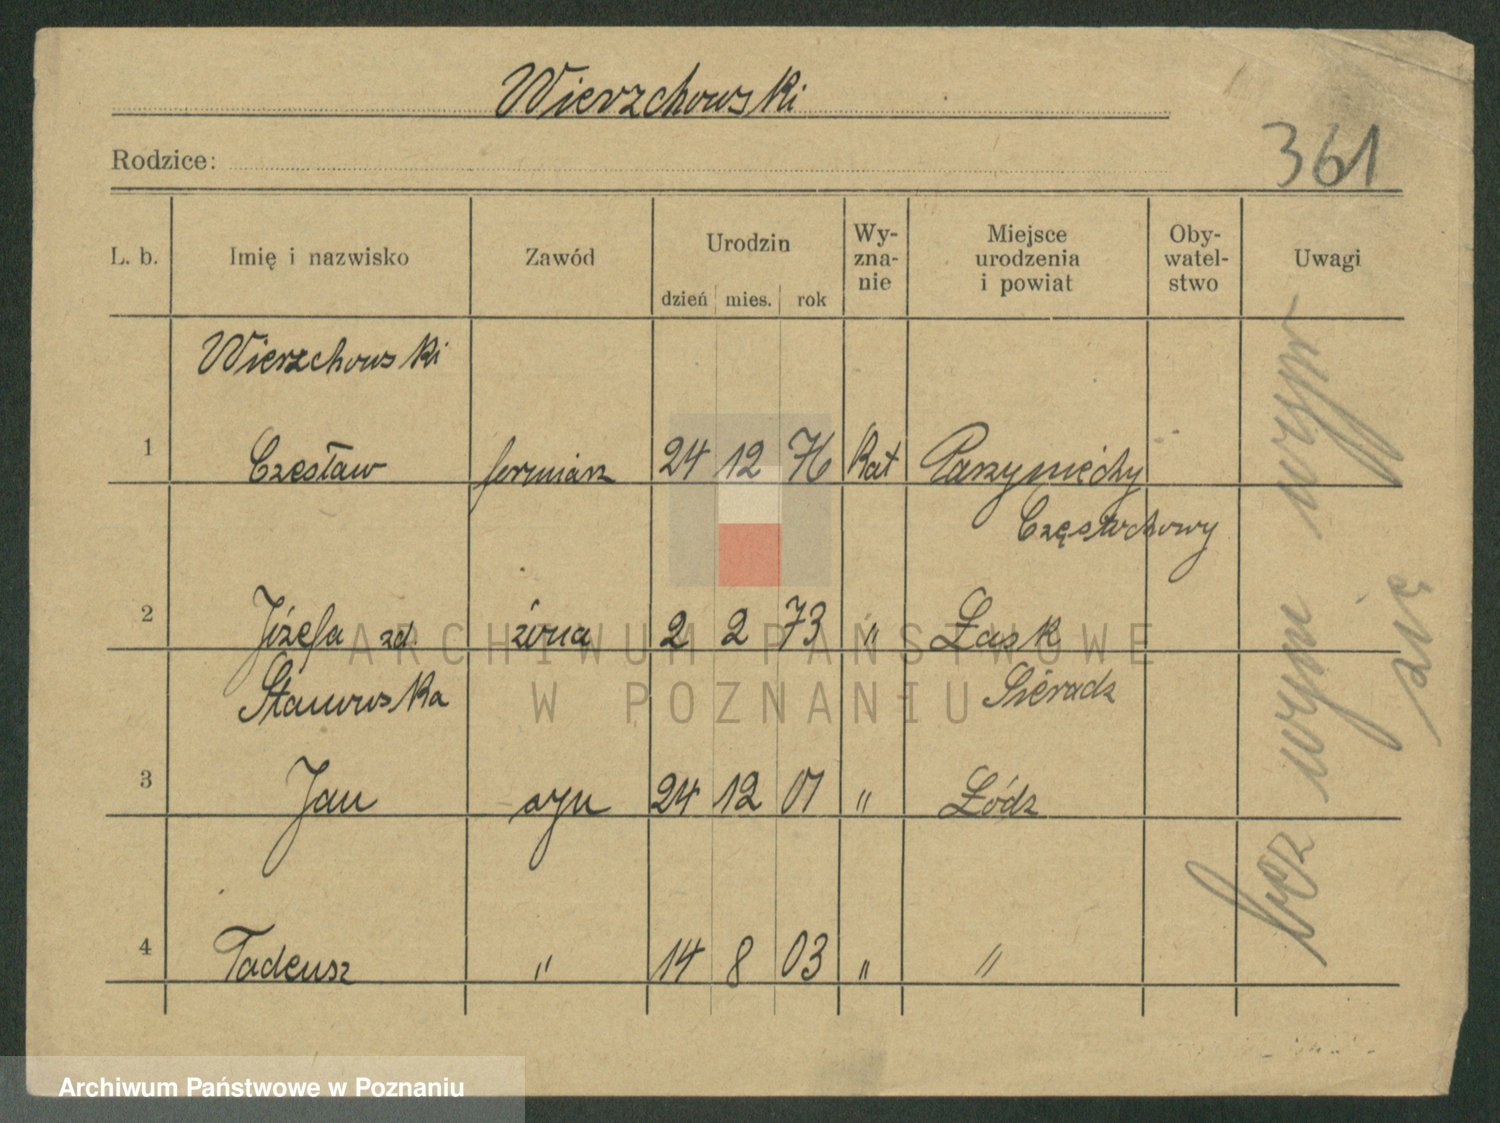 Wierzchowski
Rodzice:
361
L. b. Imię i nazwisko Zawód Urodzin dzień mies. rok Wy-zna-nie Miejsce urodzenia i powiat Oby-watel-stwo Uwagi
Wierzchowski
1 Czesław forniarz 24 12 76 Kat
Częstochowy
2 Józefa zd. żona 2 2 73 " Łask
Stanowska Sieradz
3 Jan syn 24 12 01 " Łódz
4 Tadeusz " 14 8 03 " "
bez wym
ARCHIWUM PAŃSTWOWE
W POZNANIU
Archiwum Państwowe w Poznaniu